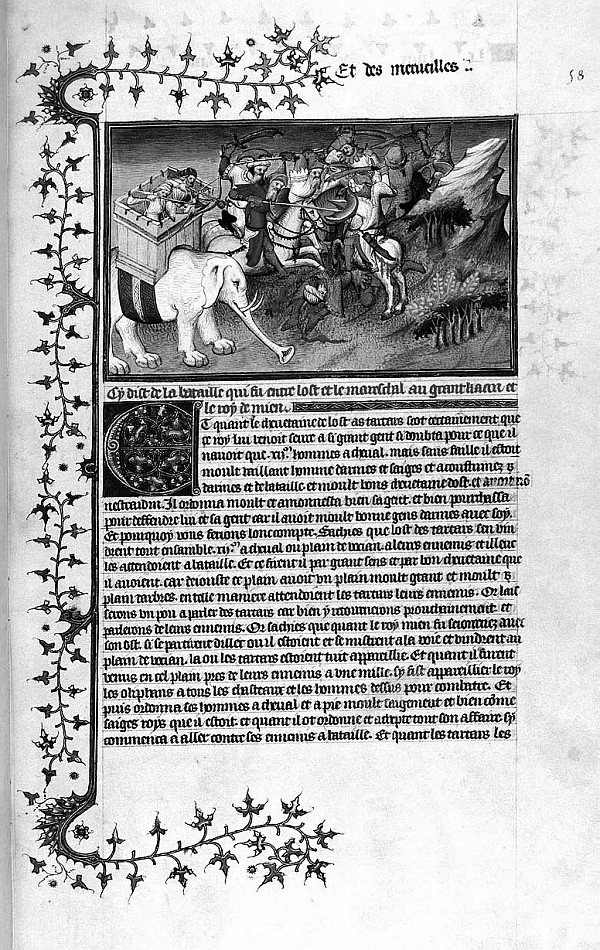 Et des merueilles :.
58
Cy dist de la bataille qui fu entre lost et le mareschal au grant kaan et
le roy de mien.
Et quant le cheuetaine de lost as tartars scot certainement que
ce roy lui venoit seure a si grant gent si doubta pour ce que il
nauoit que .xij.m hommes a cheual. mais sans faille il estoit
moult vaillant homme darmes et saiges et acoustumez
darmes et de bataille et moult bons cheuetaine dost. et auoit nõ
nestraidin. Il ordonna moult et amonnesta bien sa gent. et bien pourchassa
pour deffendre lui et sa gent car il auoit moult bonne gens darmes auec soy.
Et pourquoy vous feroins lonc compte. Sachies que lost des tartars sen vin
drent tout ensamble .xij.m a cheual ou plain de vocian. a leurs ennemis et illeuc
les attendoient a bataille. Et ce firent il par grant sens et par bon cheuetaine que
il auoient. car deiouste ce plain auoit vn plain moult grant et moult
plain darbres. en telle maniere attendoient les tartars leurs ennemis. Or lais
serons vn pou a parler des tartars car bien y retournerons prouchainement. et
parlerons de leurs ennemis. Or sachies que quant le roy mien fu seiornez auec
son ost. si se partirent dillec ou il estoient et se mistrent a la voie et vindrent au
plain de vocian. la ou les tartars estoient tuit appareillie. Et quant il furent
venus en cel plain pres de leurs ennemis a vne mille. sy fist appareillier le roy
les oliphans a tous les chasteaux et les hommes dessus pour combatre. Et
puis ordonna ses hommes a cheual et a pie moult saigement et bien cõme
saiges roys que il estoit. et quant il ot ordonne et adrecie tout son affaire. sy
commenca a aller contre ses ennemis a bataille. Et quant les tartars les